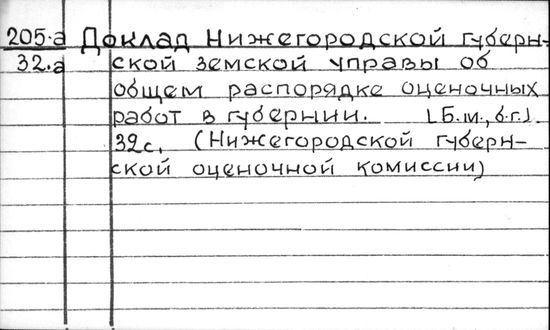 205.а Доклад Нижегородской губерн-
32.а ской земской управы об
общем распорядке оценочных
работ в губернии. [Б.м., б.г.]
32с. (Нижегородской губерн-
ской оценочной комиссии)